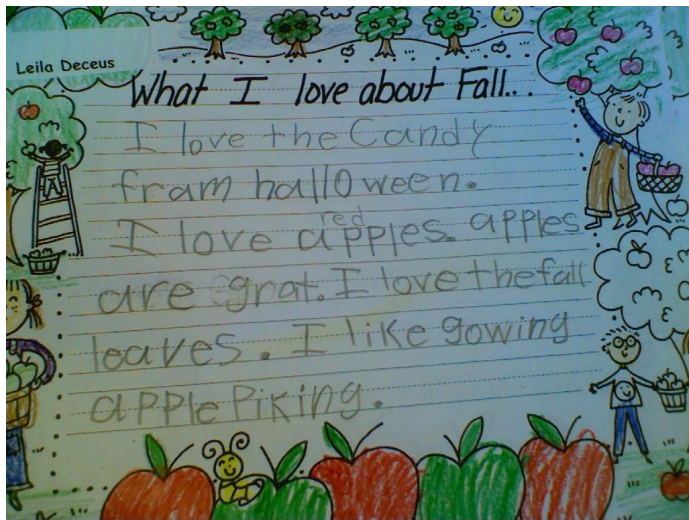 Leila Deceus
What I love about Fall...
I love the Candy
fram halloween.
I love red apples. apples
are grat. I love the fall
leaves. I like gowing
apple Piking.